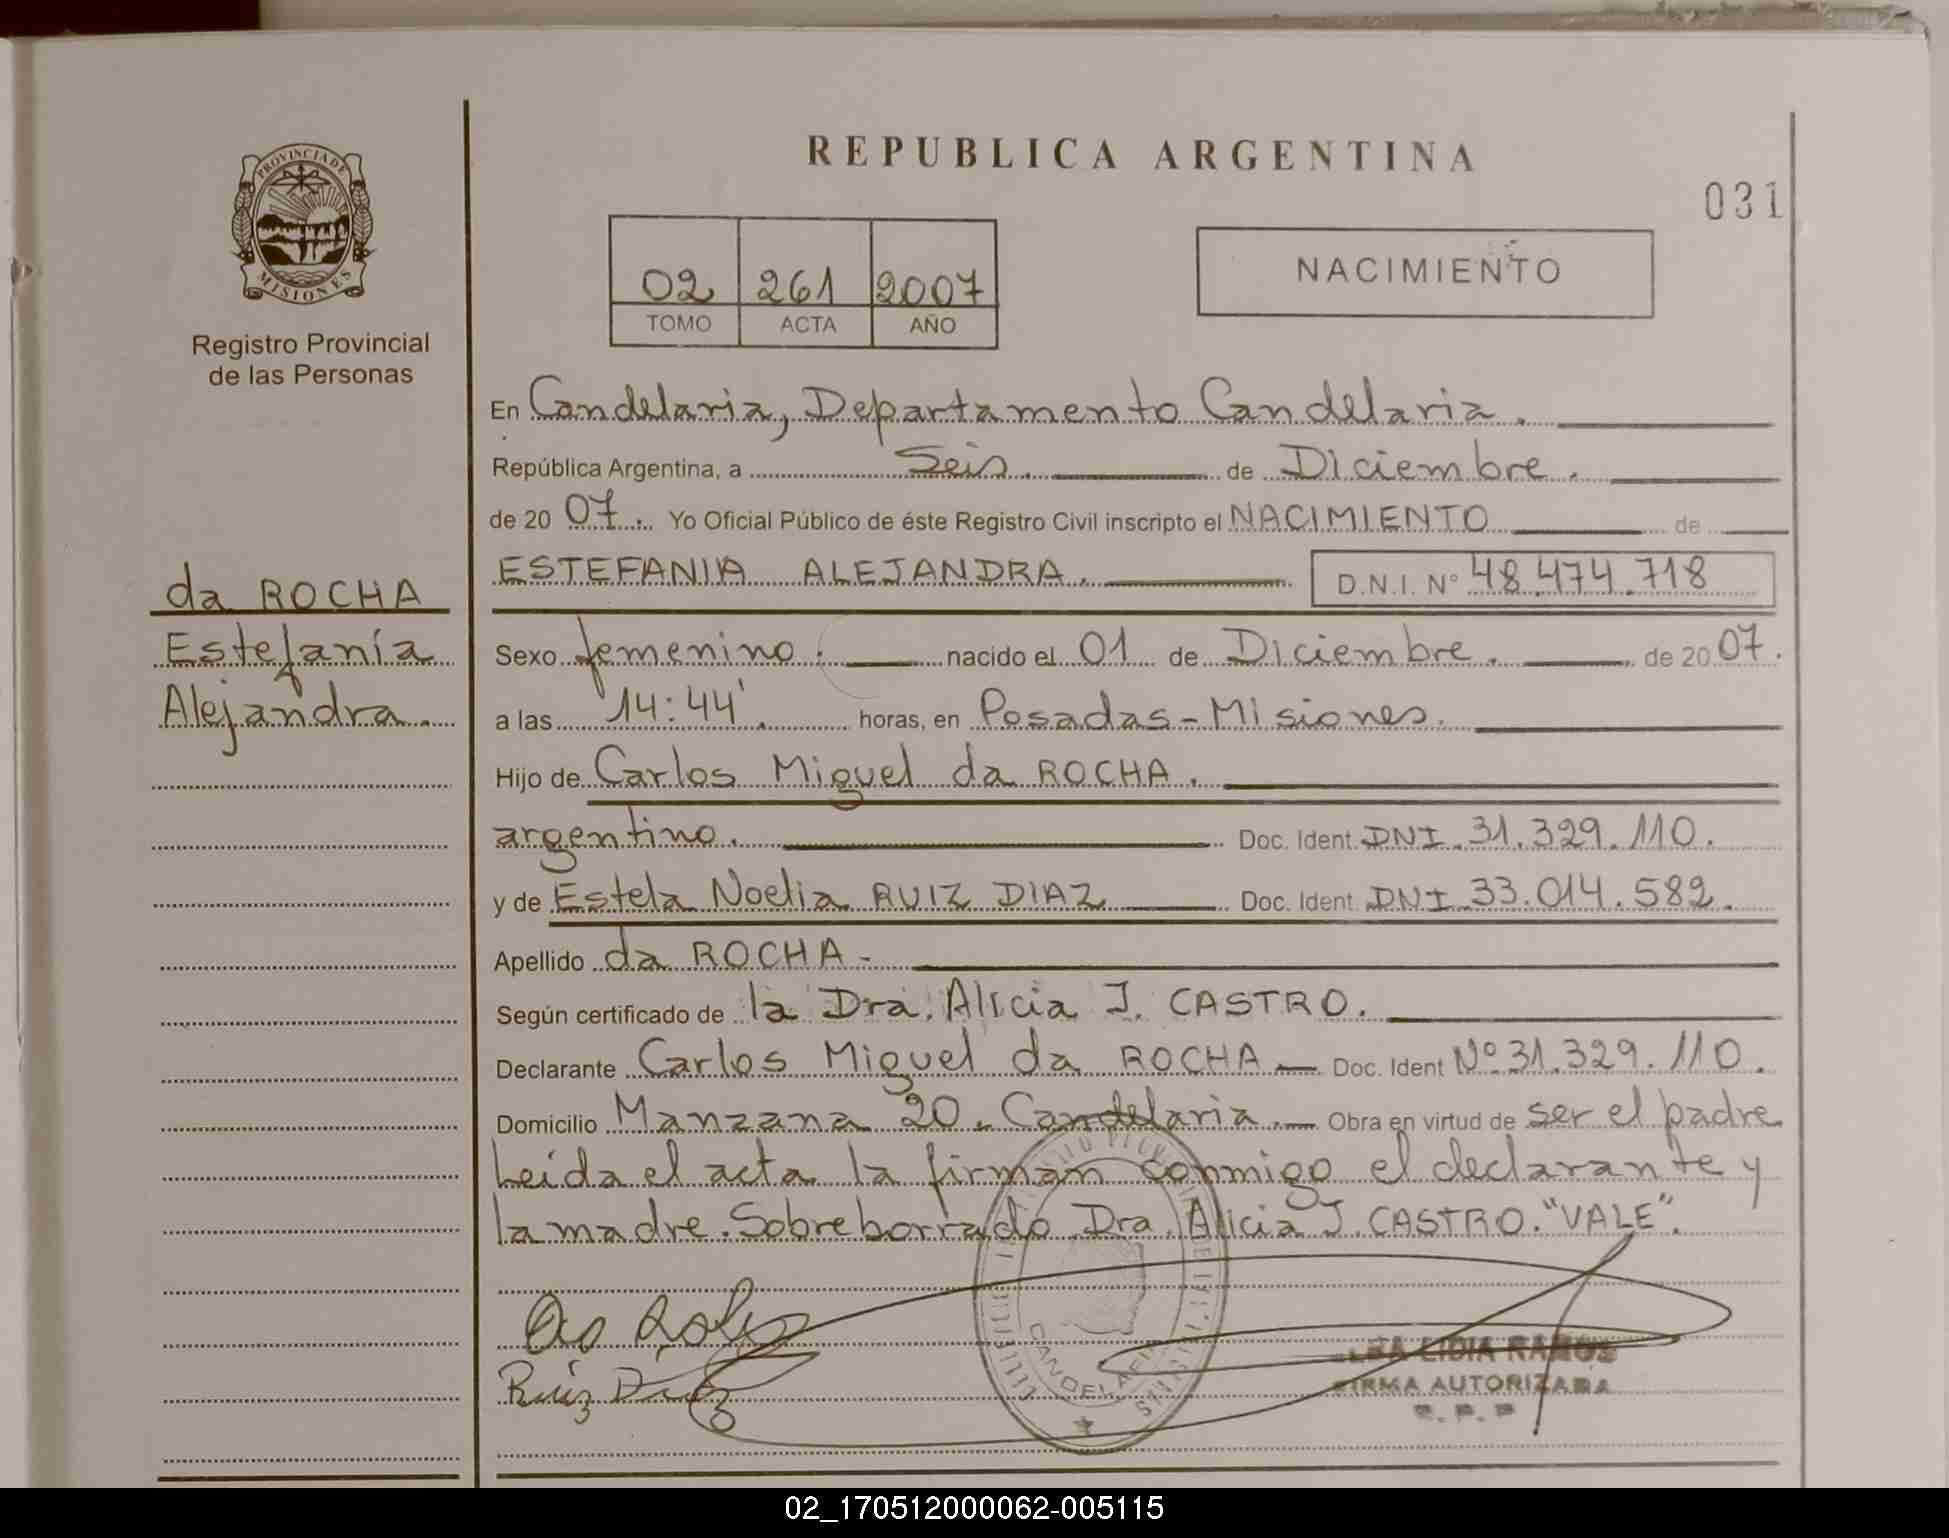 PROVINCIA DE
MISIONES
Registro Provincial
de las Personas
da ROCHA
Estefanía
Alejandra.
REPUBLICA ARGENTINA
031
02 261 2007
TOMO ACTA AÑO
NACIMIENTO
En Candelaria, Departamento Candelaria.
República Argentina, a Seis. de Diciembre.
de 20 07. Yo Oficial Público de éste Registro Civil inscripto el NACIMIENTO de
ESTEFANIA ALEJANDRA. D.N.I. Nº 48.474.718
Sexo femenino. nacido el 01 de Diciembre. de 20 07.
a las 14:44'. horas, en Posadas-Misiones.
Hijo de Carlos Miguel da ROCHA.
argentino. Doc. Ident. DNI. 31.329.110.
y de Estela Noelia RUIZ DIAZ Doc. Ident. DNI 33.014.582.
Apellido da ROCHA-
Según certificado de la Dra. Alicia J. CASTRO.
Declarante Carlos Miguel da ROCHA- Doc. Ident Nº 31.329.110.
Domicilio Manzana 20. Candelaria.- Obra en virtud de ser el padre
Leída el acta la firman conmigo el declarante y
la madre. Sobreborrado Dra. Alicia J. CASTRO. "VALE".
Ruiz Diaz
LIDIA RAMOS
FIRMA AUTORIZADA
R.P.P
02_170512000062-005115